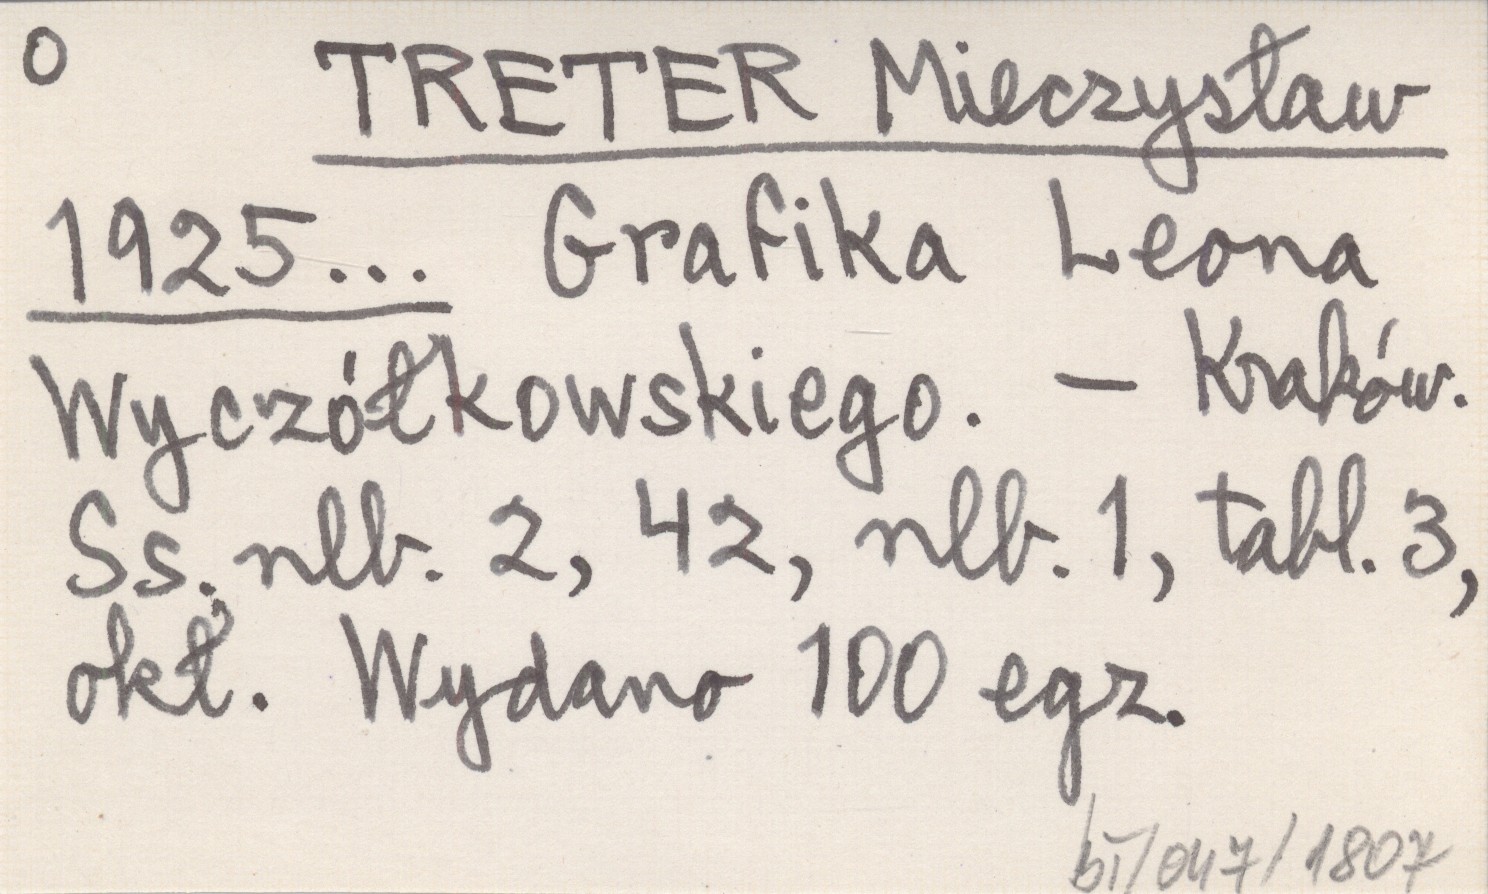 O TRETER Mieczysław
1925... Grafika Leona
Wyczółkowskiego. – Kraków.
Ss. nlb. 2, 42, nlb. 1, tabl. 3,
okł. Wydano 100 egz.
bī/047/1807